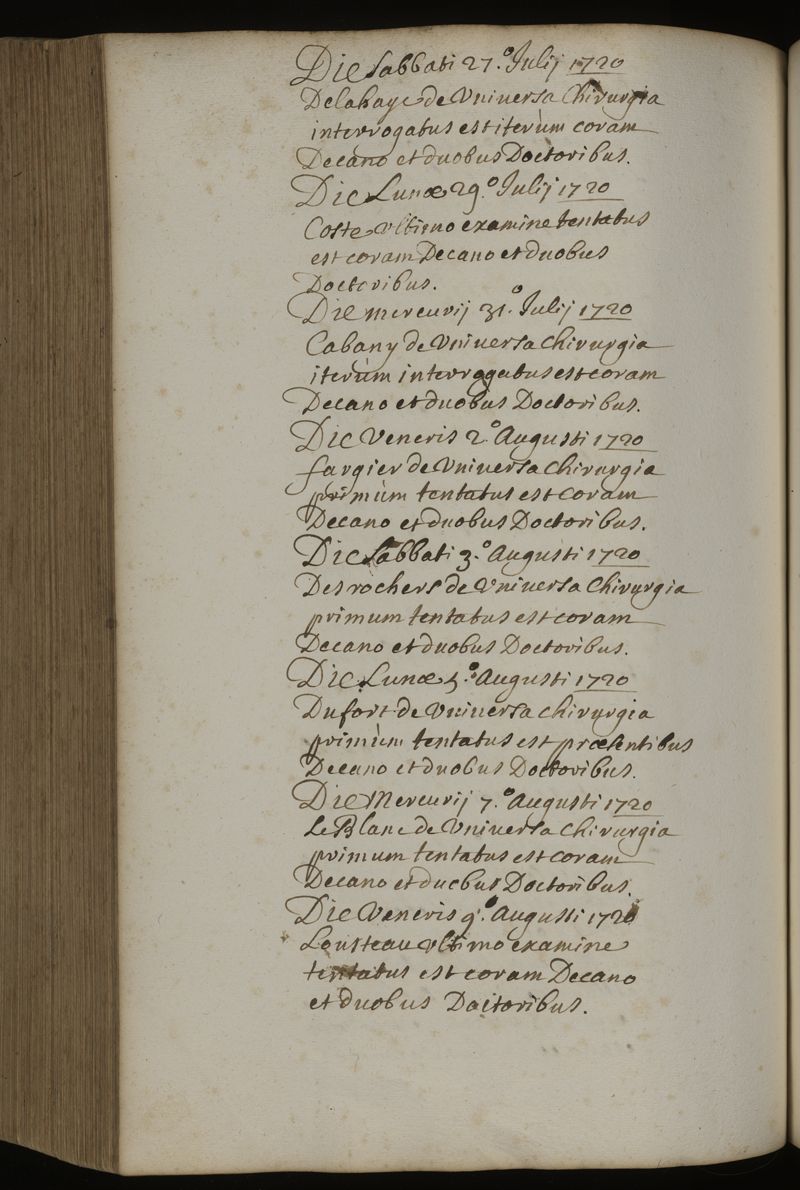 Die Sabbati 27.° Julij 1720
Delahaye de Vniuersa Chirurgia
interrogatus est iterùm coram
Decano et duobus Doctoribus.
Die Lunæ 29.° Julij 1720
Coste vltimo examine tentatus
est coram Decano et duobus
Doctoribus.
Die mercurij 31.° Julij 1720
Cabany de Vniuersa Chirurgia
iterùm interrogatus est coram
Decano et duobus Doctoribus.
Die Veneris 2.° Augusti 1720
fargier de Vniuersa Chirurgia
primùm tentatus est coram
Decano et duobus Doctoribus.
Die Sabbati 3.° Augusti 1720
Desrochers de Vniuersa Chirurgia
primum tentatus est coram
Decano et duobus Doctoribus.
Die Lunæ 5.° Augusti 1720
Dufort de Vniuersa chirurgia
primùm tentatus est præsentibus
Decano et duobus Doctoribus.
Die Mercurij 7.° Augusti 1720
Le Blanc de Vniuersa Chirurgia
primum tentatus est coram
Decano et duobus Doctoribus.
Die Veneris 9.° Augusti 1720
Lousteau vltimo examine
tentatus est coram Decano
et duobus Doctoribus.